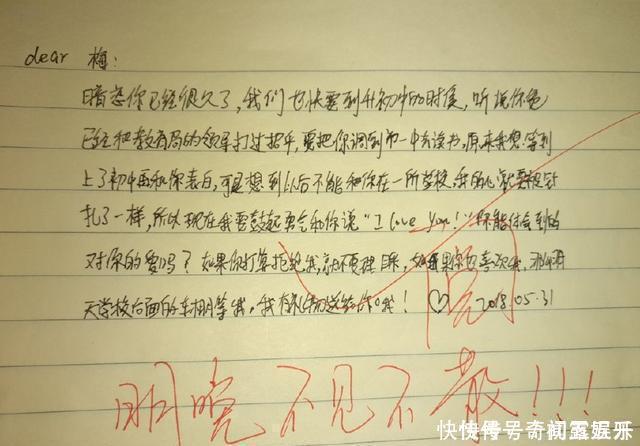 dear 梅：
暗恋你已经很久了，我们也快要到升初中的时候，听说你爸
已经和教育局的领导打过招乎，要把你调到市一中去读书，原来我想等到
上了初中再和你表白，可是想到以后不能和你在一所学校，我的心就要被针
扎了一样，所以现在我要鼓起勇气和你说“I love You!”你能体会到的
对你的爱吗？如果你打算拒绝我，就不要理睬，如果你也喜欢我，那明
天学校后面的车棚等我，我有礼物送给你哦！♡ 2018.05.31
阅
明晚不见不散!!!